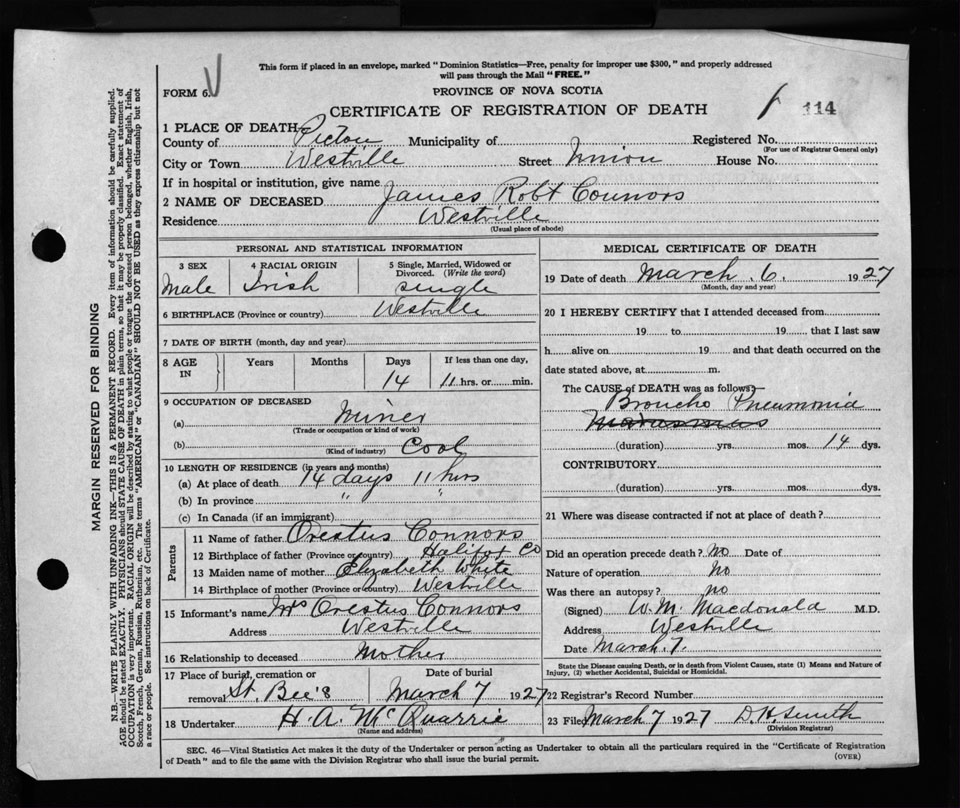 This form if placed in an envelope, marked "Dominion Statistics—Free, penalty for improper use $300," and properly addressed
will pass through the Mail "FREE."
FORM 6.
PROVINCE OF NOVA SCOTIA
CERTIFICATE OF REGISTRATION OF DEATH
114
1 PLACE OF DEATH
County of Pictou Municipality of Registered No.
(For use of Registrar General only)
City or Town Westville Street Union House No.
If in hospital or institution, give name
2 NAME OF DECEASED James Robt Connors
Residence Westville
(Usual place of abode)
PERSONAL AND STATISTICAL INFORMATION
3 SEX 4 RACIAL ORIGIN 5 Single, Married, Widowed or
Divorced. (Write the word)
Male Irish single
6 BIRTHPLACE (Province or country) Westville
7 DATE OF BIRTH (month, day and year)
8 AGE IN Years Months Days If less than one day,
14 11 hrs. or min.
9 OCCUPATION OF DECEASED
(a) Miner
(Trade or occupation or kind of work)
(b) Cool
(Kind of industry)
10 LENGTH OF RESIDENCE (in years and months)
(a) At place of death 14 days 11 hrs
(b) In province " "
(c) In Canada (if an immigrant)
Parents
11 Name of father Orestus Connors
12 Birthplace of father (Province or country) Halifax Co
13 Maiden name of mother Elizabeth White
14 Birthplace of mother (Province or country) Westville
15 Informant's name Mrs Orestus Connors
Address Westville
16 Relationship to deceased Mother
17 Place of burial, cremation or Date of burial
removal St. Bee's March 7 1927
18 Undertaker H. A. McQuarrie
(Name and address)
MEDICAL CERTIFICATE OF DEATH
19 Date of death March 6. 1927
(Month, day and year)
20 I HEREBY CERTIFY that I attended deceased from
19 to 19 that I last saw
h alive on 19 and that death occurred on the
date stated above, at m.
The CAUSE of DEATH was as follows:—
Broncho Pneumonia
Marasmus
(duration) yrs. mos. 14 dys.
CONTRIBUTORY
(duration) yrs. mos. dys.
21 Where was disease contracted if not at place of death?
Did an operation precede death? No Date of
Nature of operation No
Was there an autopsy? no
(Signed) W. M. Macdonald M.D.
Address Westville
Date March. 7.
State the Disease causing Death, or in death from Violent Causes, state (1) Means and Nature of
Injury, (2) whether Accidental, Suicidal or Homicidal.
22 Registrar's Record Number
23 Filed March 7 1927 D. H. Smith
(Division Registrar)
SEC. 46—Vital Statistics Act makes it the duty of the Undertaker or person acting as Undertaker to obtain all the particulars required in the "Certificate of Registration
of Death" and to file the same with the Division Registrar who shall issue the burial permit.
(OVER)
MARGIN RESERVED FOR BINDING
N.B.—WRITE PLAINLY WITH UNFADING INK—THIS IS A PERMANENT RECORD. Every item of information should be carefully supplied.
AGE should be stated EXACTLY. PHYSICIANS should STATE CAUSE OF DEATH in plain terms, so that it may be properly classified. Exact statement of
OCCUPATION is very important. RACIAL ORIGIN will be described by stating to what people or tongue the deceased person belonged, whether English, Irish,
Scotch, French, German, Russian, Ruthenian, etc. The terms "AMERICAN" or "CANADIAN" SHOULD NOT BE USED as they express citizenship but not
a race or people. See instructions on back of Certificate.